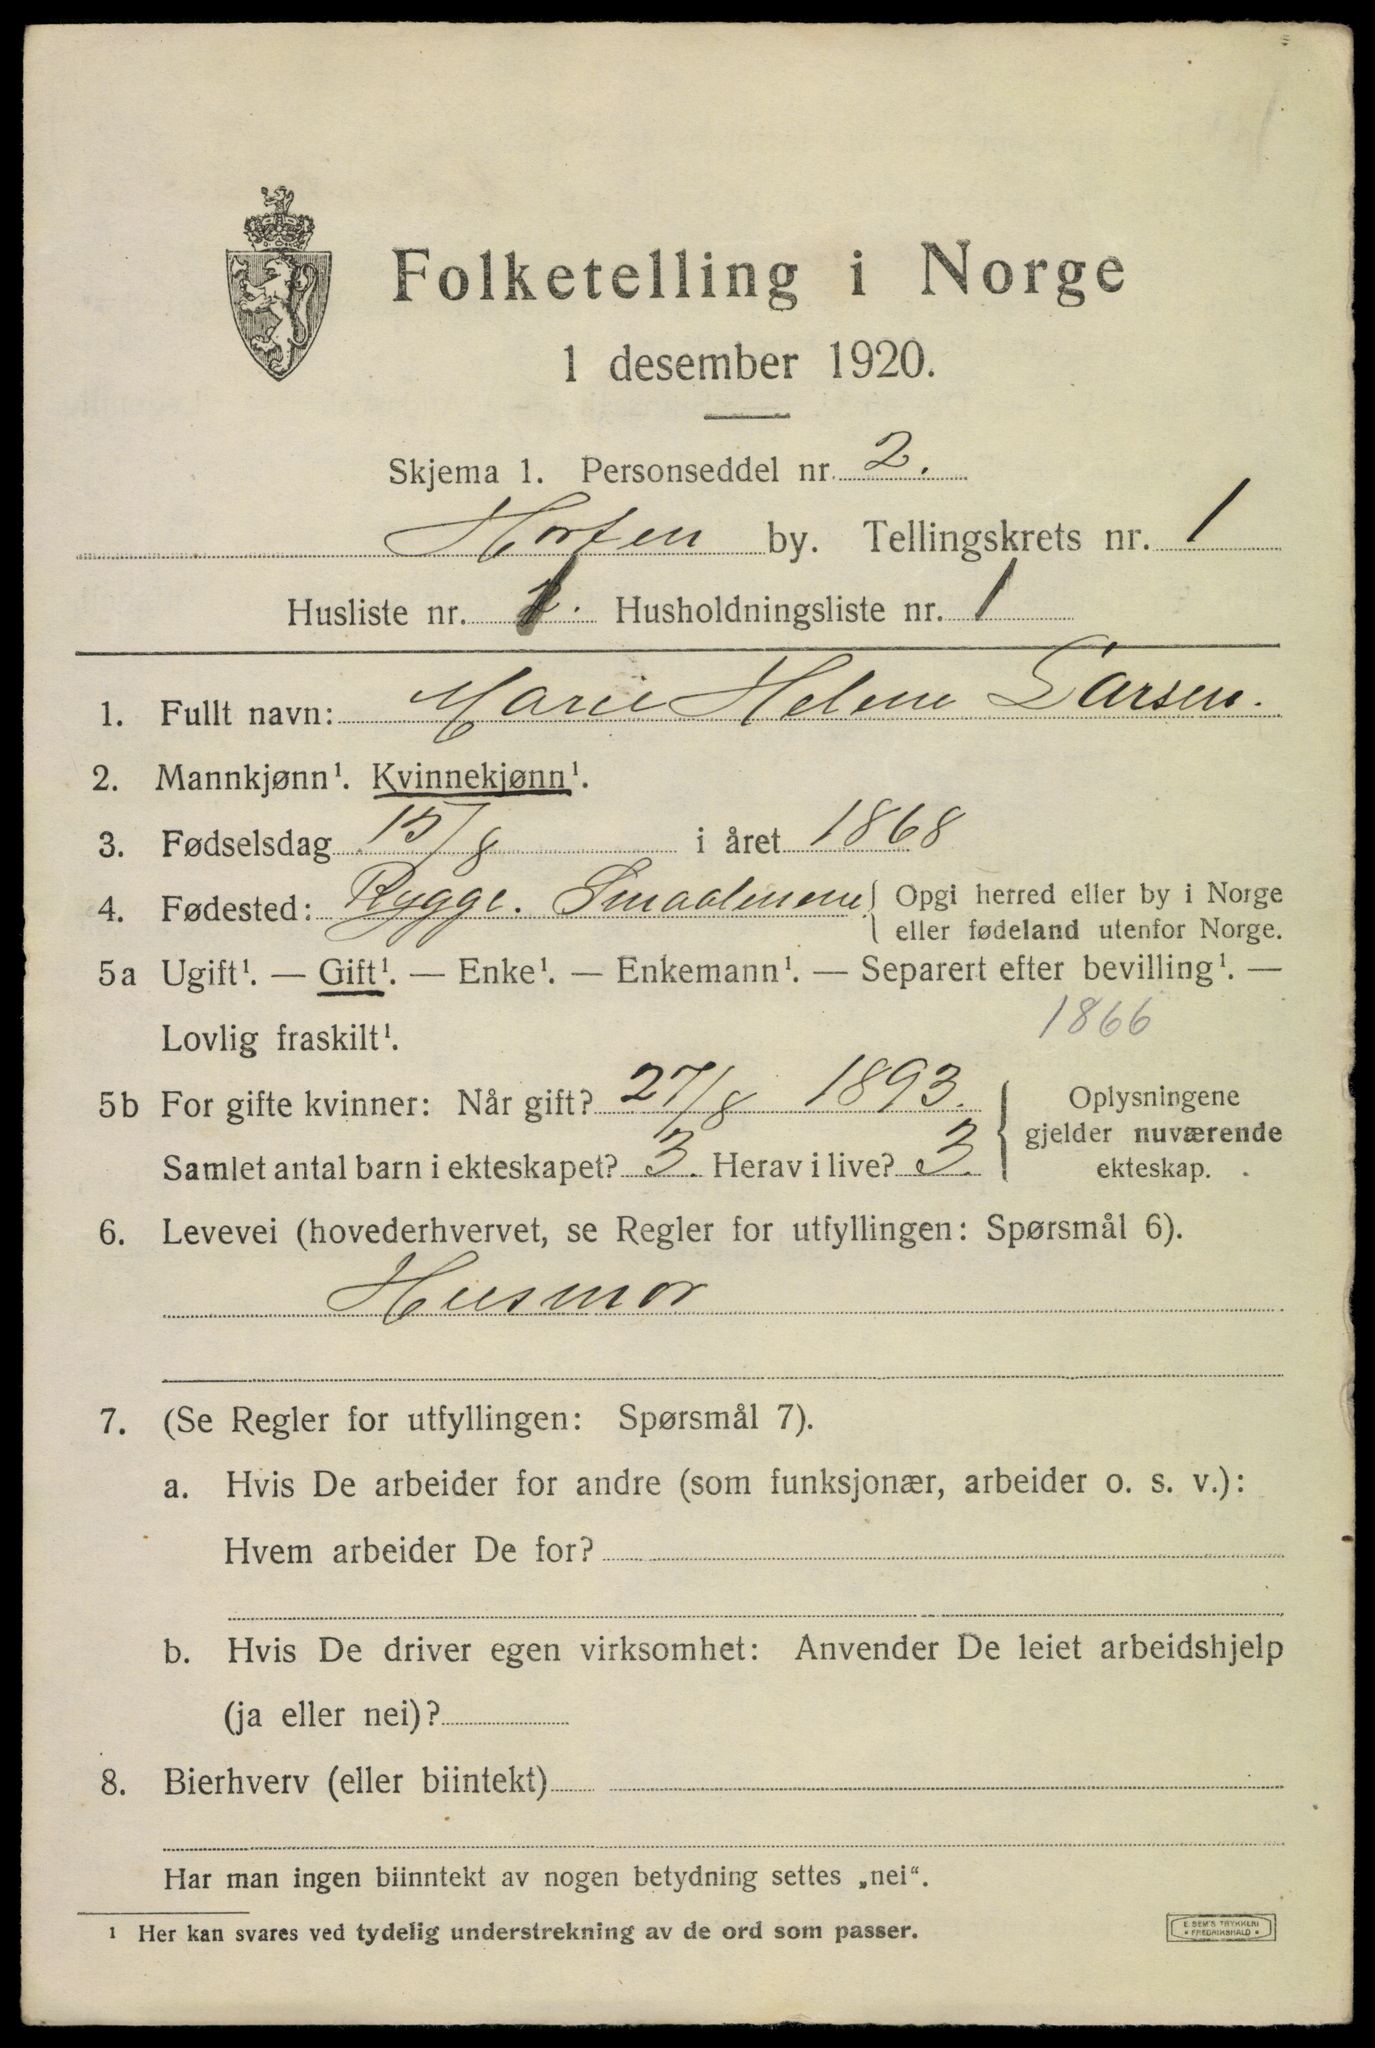 Folketelling i Norge
1 desember 1920.
Skjema 1. Personseddel nr. 2.
Horten by. Tellingskrets nr. 1
Husliste nr. 1. Husholdningsliste nr. 1
1. Fullt navn: Marie Helene Larsen.
2. Mannkjønn¹. Kvinnekjønn¹.
3. Fødselsdag 15/8 i året 1868
4. Fødested: Rygge. Smaalenene { Opgi herred eller by i Norge
eller fødeland utenfor Norge.
5a Ugift¹. — Gift¹. — Enke¹. — Enkemann¹. — Separert efter bevilling¹. —
Lovlig fraskilt¹. 1866
5b For gifte kvinner: Når gift? 27/8 1893. { Oplysningene
gjelder nuværende
Samlet antal barn i ekteskapet? 3. Herav i live? 3. ekteskap.
6. Levevei (hovederhvervet, se Regler for utfyllingen: Spørsmål 6).
Husmor
7. (Se Regler for utfyllingen: Spørsmål 7).
a. Hvis De arbeider for andre (som funksjonær, arbeider o. s. v.):
Hvem arbeider De for?
b. Hvis De driver egen virksomhet: Anvender De leiet arbeidshjelp
(ja eller nei)?
8. Bierhverv (eller biintekt)
Har man ingen biinntekt av nogen betydning settes „nei“.
¹ Her kan svares ved tydelig understrekning av de ord som passer.
E. SEM'S TRYKKERI
* FREDRIKSHALD *